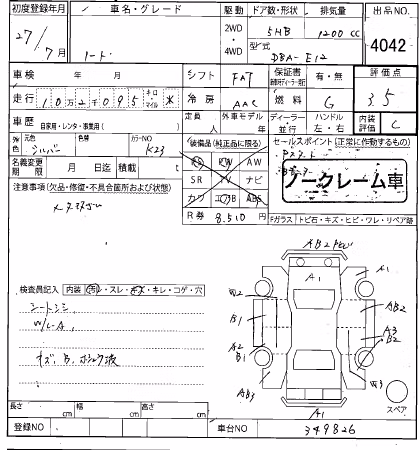 初度登録年月 車名・グレード 駆動 ドア数・形状 排気量 出品NO.
27/7月 ノート 2WD・4WD 5HB 1200cc 4042
型式 DBA-E12
車検 年 月 シフト FAT 保証書 有・無 評価点
走行 10万2千095 キロ マイル 冷房 AAC 燃料 G 3.5
車歴 自家用・レンタ・事業用( ) 定員 人 外車モデル 年 ディーラー 並行 ハンドル 左・右 内装評価 C
外色 元色 シルバー 色替 カラーNO K23 装備品(純正品に限る) セールスポイント(正常に作動するもの)
PS PW AW
名義変更期限 月 日迄 積載量 t SR TV ナビ
注意事項(欠品・修復・不具合箇所および状態) カワ エアB ABS ノークレーム車
R券 8,510
Fガラス トビ石・キズ・ヒビ・ワレ・リペア跡
AB2
A1
A1
検査員記入 内装 汚レ・スレ・キズ・キレ・コゲ・穴
W2
シートシミ B1
W/L-A A3
B2
A2
B1
キズ、B、
AB3 W3
スペア
A1
長さ cm 幅 cm 高さ cm
登録NO 車台NO 349826